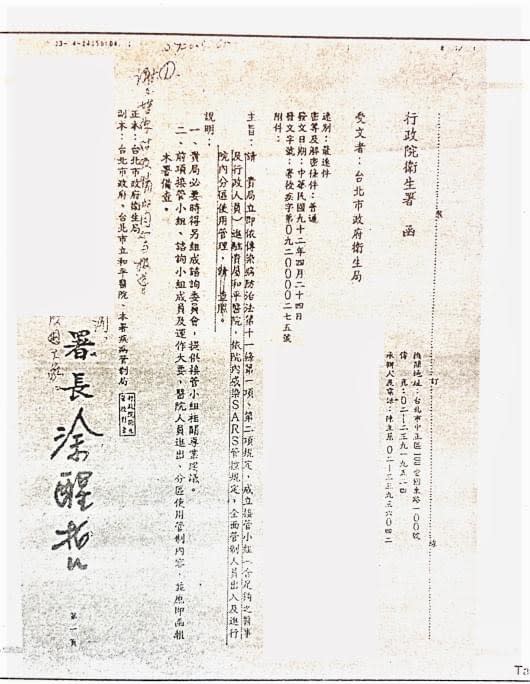 行政院衛生署 函
機關地址：台北市中正區100愛國東路一00號
受文者：台北市政府衛生局
速別：最速件
密等及解密條件：普通
發文日期：中華民國九十二年四月二十四日
發文字號：署授疾字第0九二0000二七五號
附件：
主旨：請 貴局立即依傳染病防治法第十一條第一項、第二項規定，成立接管小組（含足夠之醫事
及行政人員）進駐貴局和平醫院，依院內感染SARS管控規定，全面管制人員出入及進行
院內分區使用管理，請 查照。
說明：
一、貴局必要時得另組成諮詢委員會，提供接管小組相關專業建議。
二、前項接管小組、諮詢小組成員及運作大要，醫院人員進出、分區使用管制內容，並應即函報
本署備查。
正本：台北市政府衛生局
副本：台北市政府、台北市立和平醫院、本署疾病管制局
署長涂醒哲
第一頁
Ta